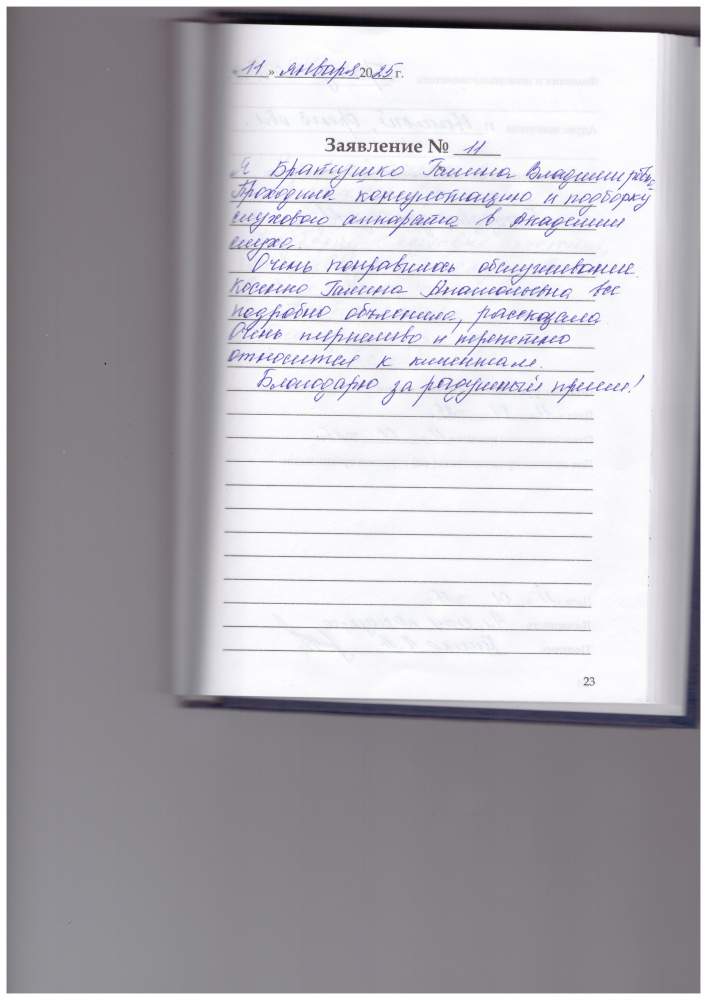 «11» января 2025 г.
Заявление № 11
Я Братушко Галина Владимировна
Проходила консультацию и подборку
слухового аппарата в Академии
слуха.
Очень понравилось обслуживание.
Косенко Галина Анатольевна все
подробно объяснила, рассказала.
Очень терпеливо и
относится к клиентам.
Благодарю за радушный прием!
23